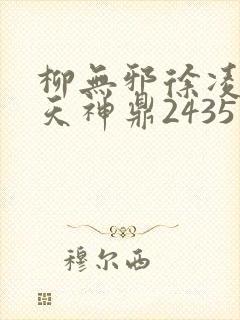 柳無邪徐凌
天神鼎2435
穆尔西